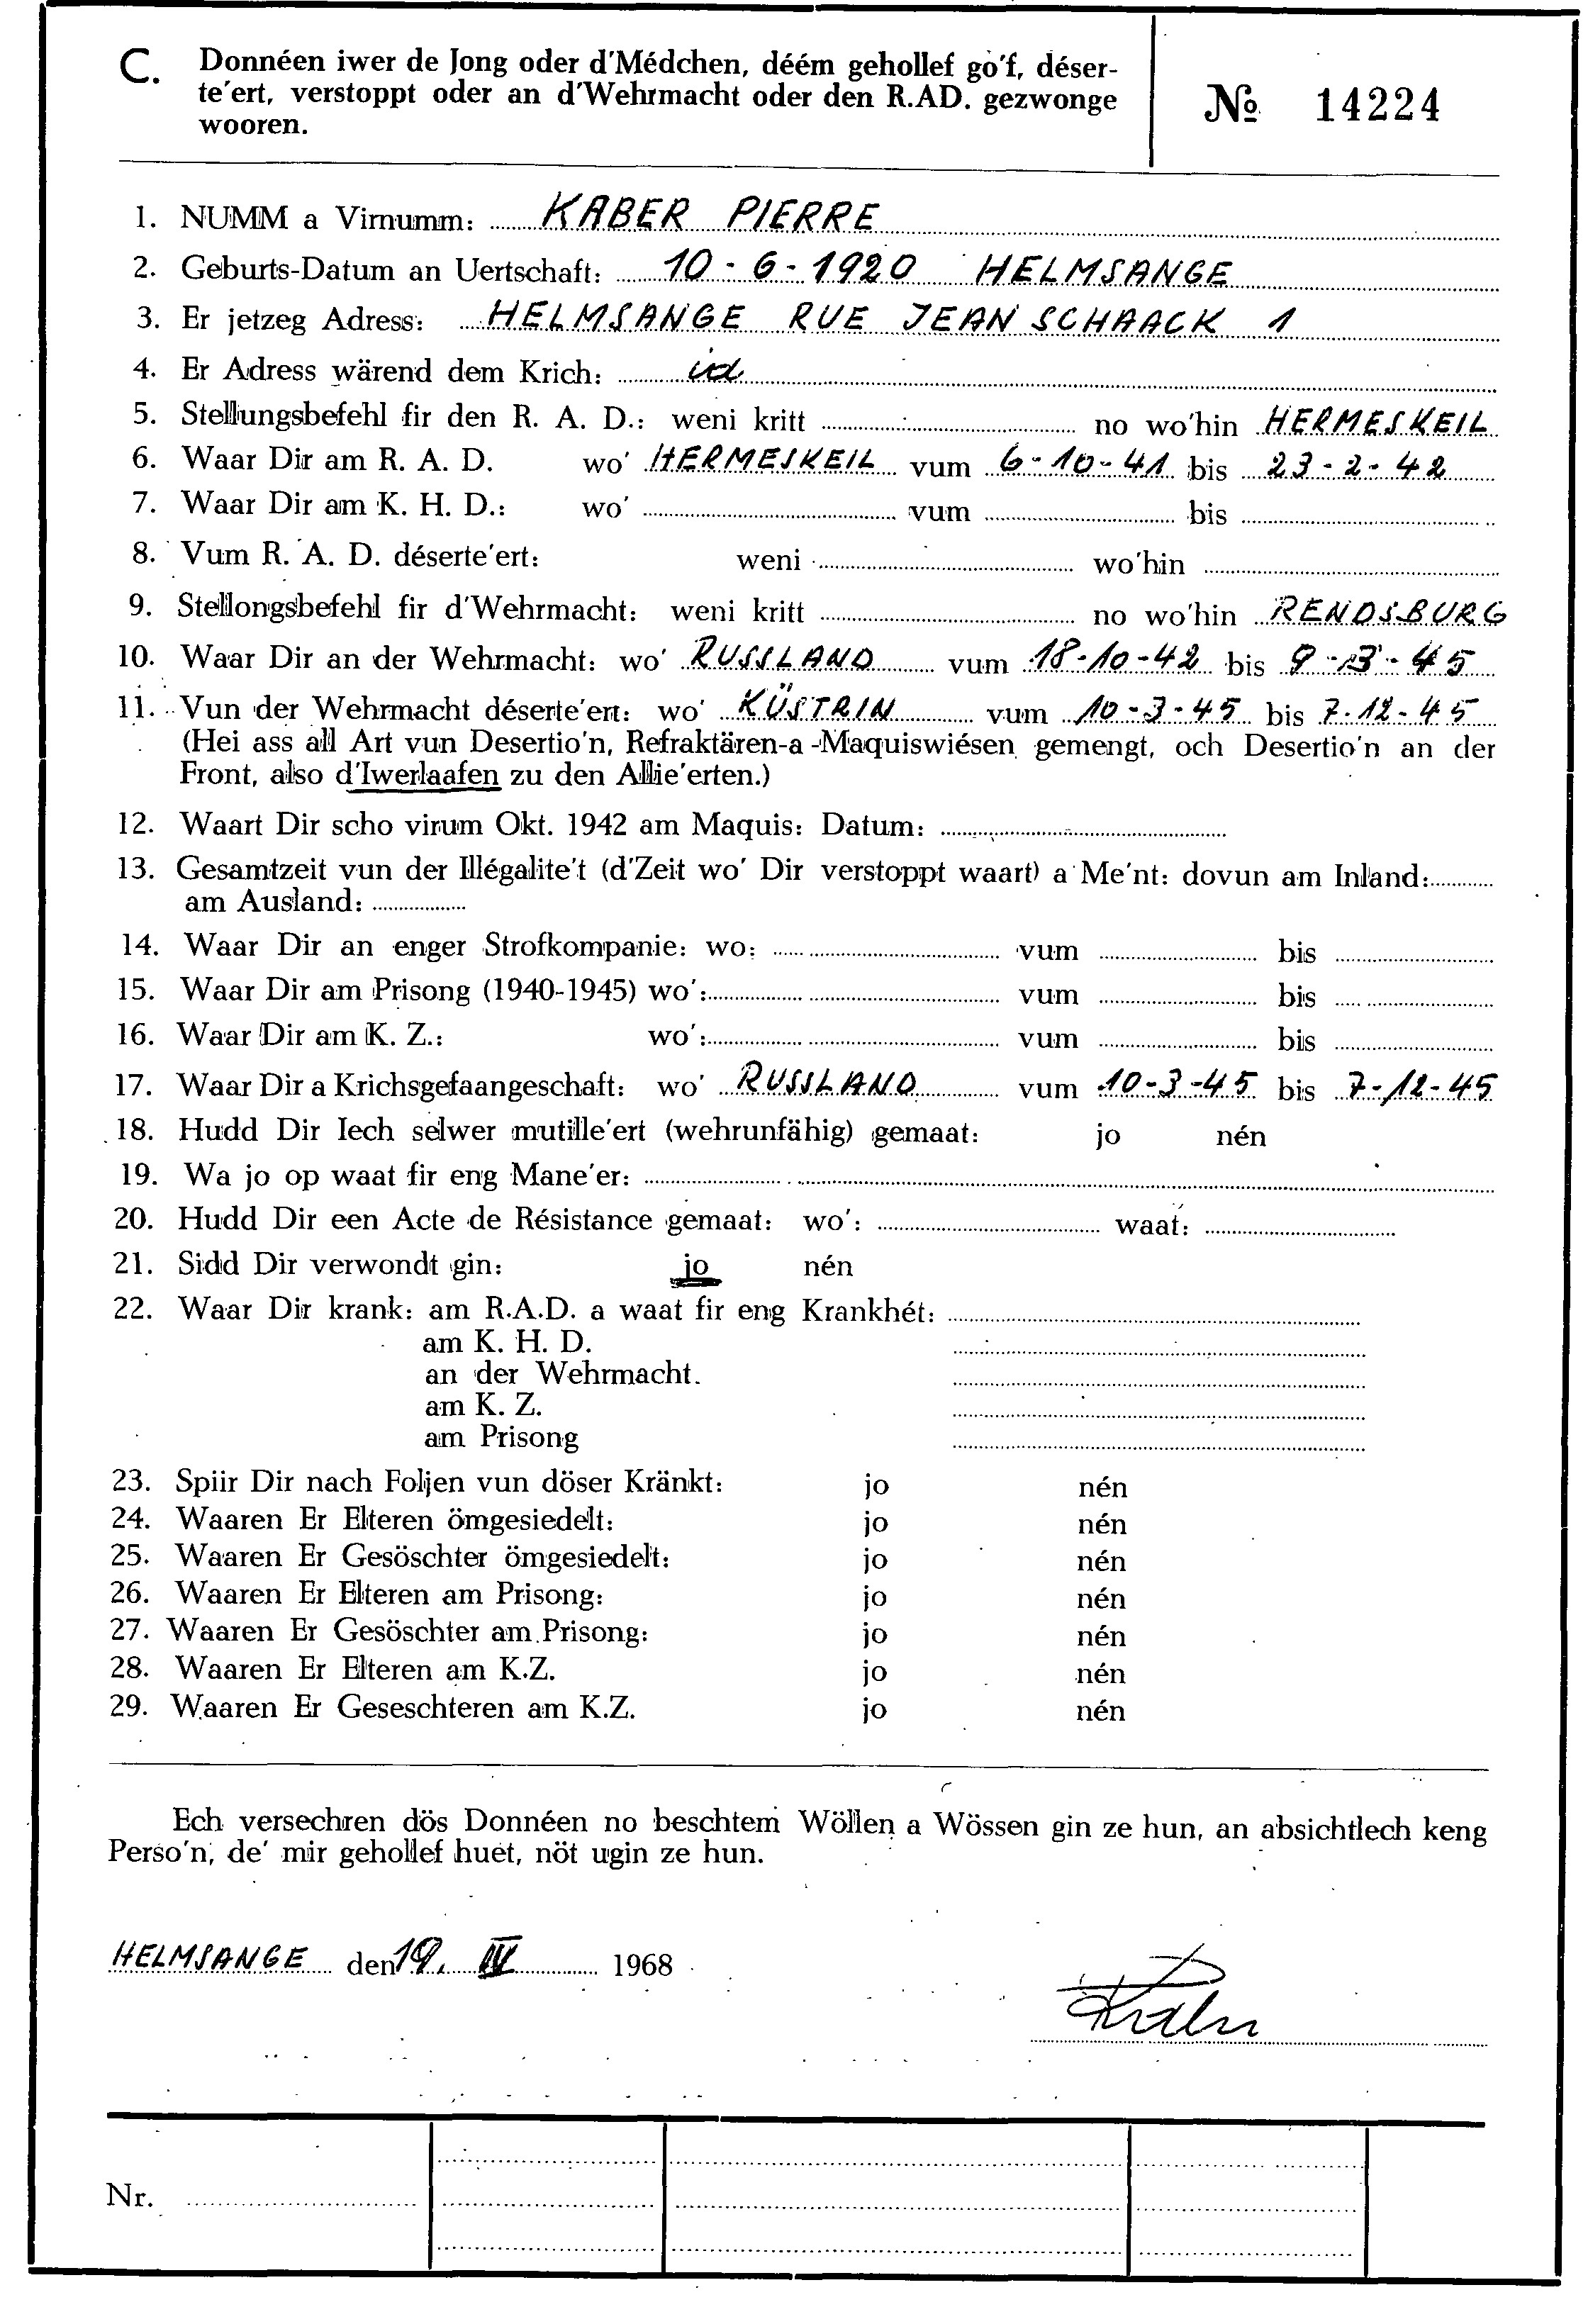 C. Donnéen iwer de Jong oder d'Médchen, déém gehollef go'f, déser-
te'ert, verstoppt oder an d'Wehrmacht oder den R.AD. gezwonge
wooren.
No 14224
1. NUMM a Virnumm: KABER PIERRE
2. Geburts-Datum an Uertschaft: 10-6-1920 HELMSANGE
3. Er jetzeg Adress: HELMSANGE RUE JEAN SCHAACK 1
4. Er Adress wärend dem Krich: id
5. Stellungsbefehl fir den R. A. D.: weni kritt no wo'hin HERMESKEIL
6. Waar Dir am R. A. D. wo' HERMESKEIL vum 6-10-41 bis 23-2-42
7. Waar Dir am K. H. D.: wo' vum bis
8. Vum R. A. D. déserte'ert: weni wo'hin
9. Stellongsbefehl fir d'Wehrmacht: weni kritt no wo'hin RENDSBURG
10. Waar Dir an der Wehrmacht: wo' RUSSLAND vum 18-10-42 bis 9-3-45
11. Vun der Wehrmacht déserte'ert: wo' KÜSTRIN vum 10-3-45 bis 7-12-45
(Hei ass all Art vun Desertio'n, Refraktären-a-Maquiswiésen gemengt, och Desertio'n an der
Front, also d'Iwerlaafen zu den Allie'erten.)
12. Waart Dir scho virum Okt. 1942 am Maquis: Datum:
13. Gesamtzeit vun der Illégalite't (d'Zeit wo' Dir verstoppt waart) a Me'nt: dovun am Inland:
am Ausland:
14. Waar Dir an enger Strofkompanie: wo: vum bis
15. Waar Dir am Prisong (1940-1945) wo': vum bis
16. Waar Dir am K. Z.: wo': vum bis
17. Waar Dir a Krichsgefaangeschaft: wo' RUSSLAND vum 10-3-45 bis 7-12-45
18. Hudd Dir Iech selwer mutille'ert (wehrunfähig) gemaat: jo nén
19. Wa jo op waat fir eng Mane'er:
20. Hudd Dir een Acte de Résistance gemaat: wo': waat:
21. Sidd Dir verwondt gin: jo nén
22. Waar Dir krank: am R.A.D. a waat fir eng Krankhét:
am K. H. D.
an der Wehrmacht.
am K. Z.
am Prisong
23. Spiir Dir nach Foljen vun döser Kränkt: jo nén
24. Waaren Er Elteren ömgesiedelt: jo nén
25. Waaren Er Gesöschter ömgesiedelt: jo nén
26. Waaren Er Elteren am Prisong: jo nén
27. Waaren Er Gesöschter am Prisong: jo nén
28. Waaren Er Elteren am K.Z. jo nén
29. Waaren Er Geseschteren am K.Z. jo nén
Ech versechren dös Donnéen no beschtem Wöllen a Wössen gin ze hun, an absichtlech keng
Perso'n, de' mir gehollef huet, nöt ugin ze hun.
HELMSANGE den 19. IV 1968
Nr.